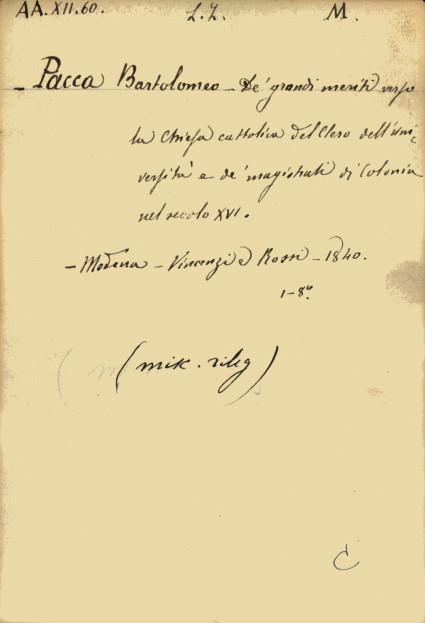 AA.XII.60. L.L. M.
- Pacca Bartolomeo - De' grandi meriti verso
la Chiesa cattolica del Clero dell'uni-
versità e de' magistrati di Colonia
nel secolo XVI.
- Modena - Vincenzi e Rossi - 1840.
1-8°.
(misc. rileg)
C